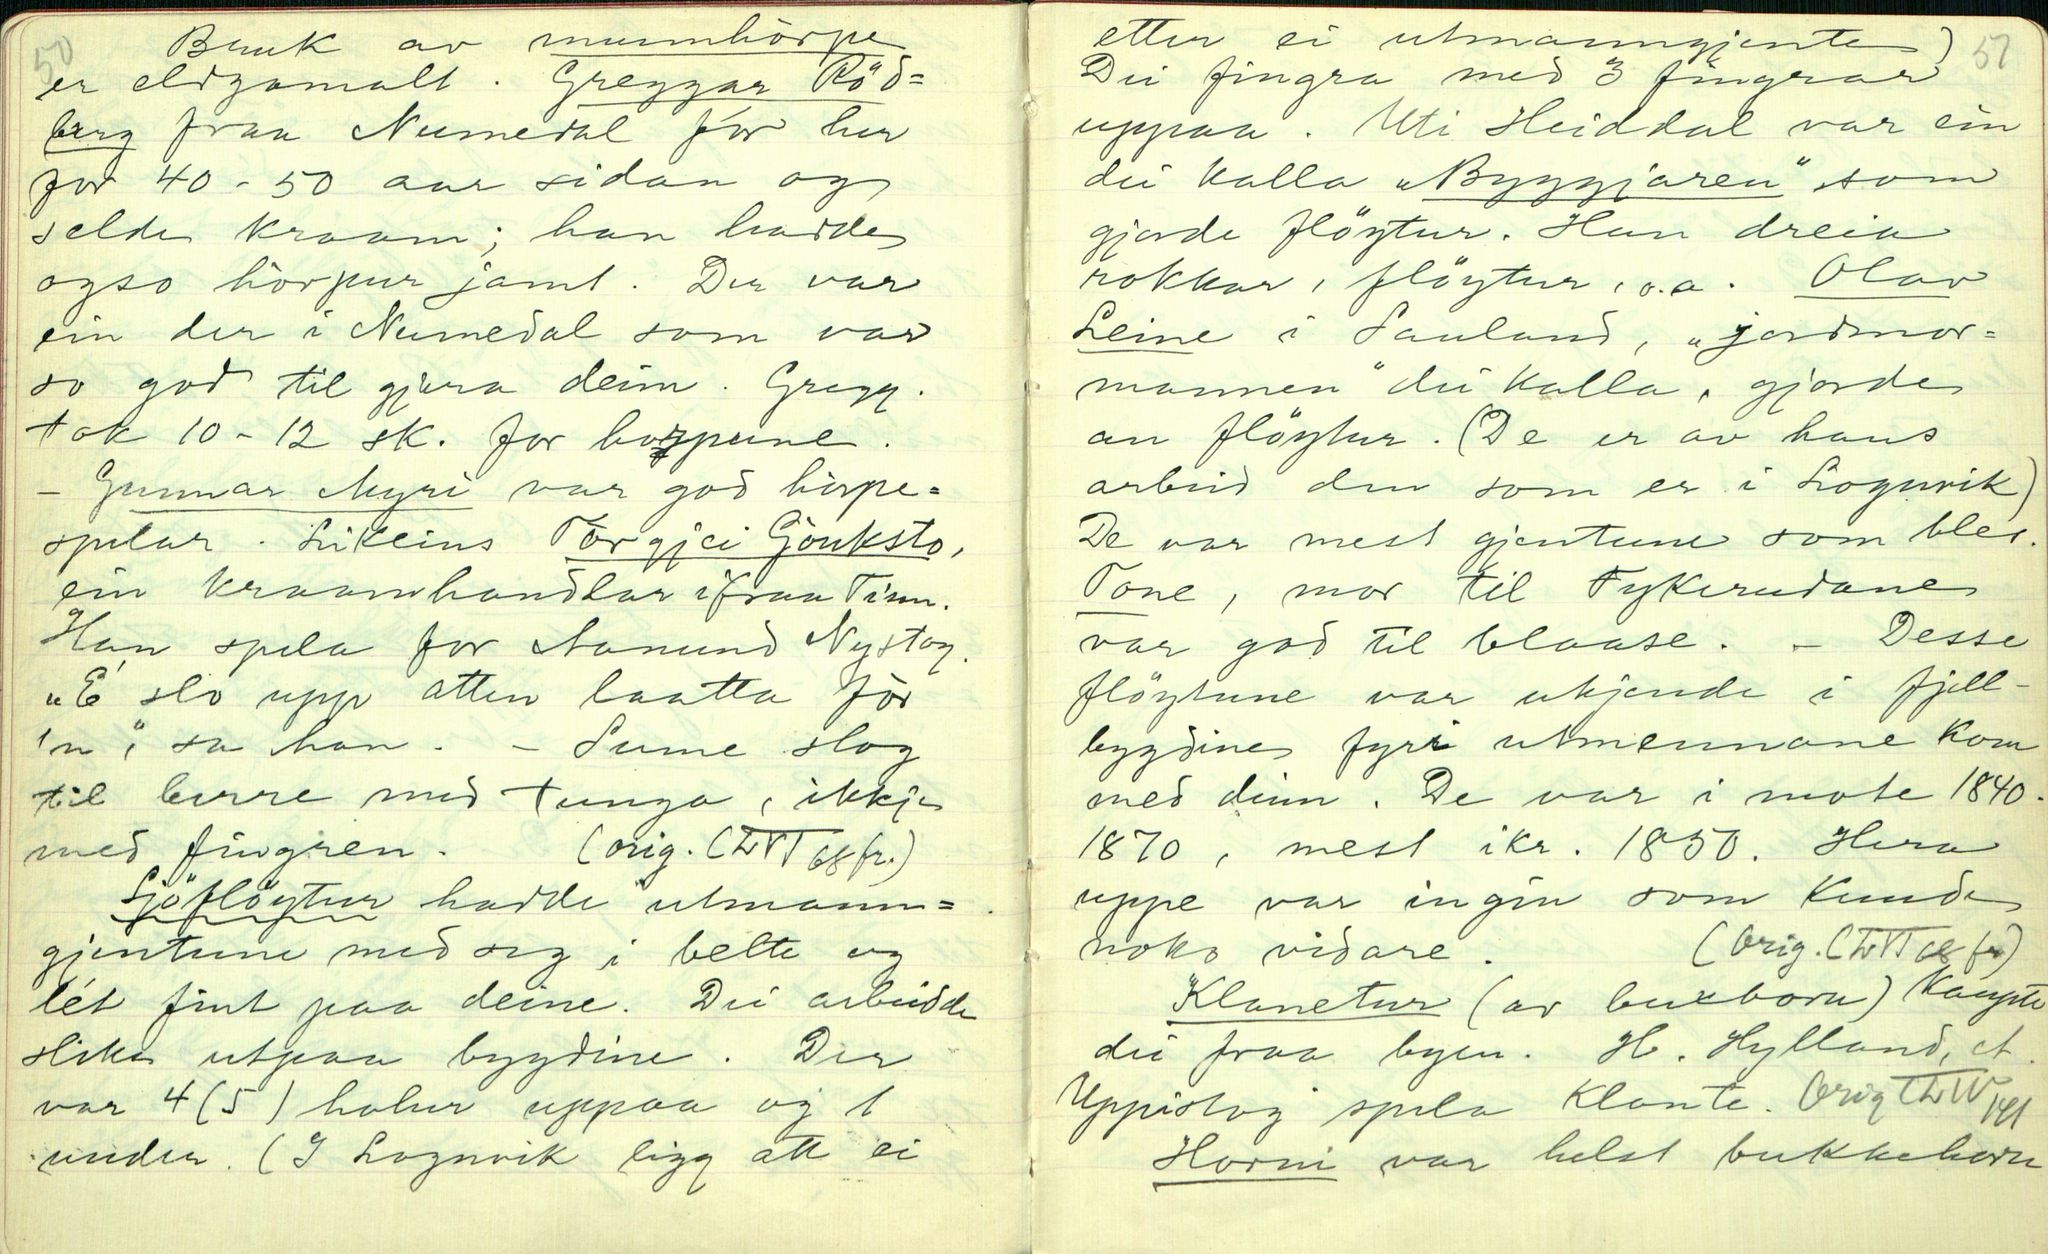 50
Bruk av munnhörpe
er eldgamalt. Greggar Röd=
berg fraa Numedal fór her
for 40-50 aar sidan og
selde kraam; han hadde
ogso hörpur jamt. Der var
ein der i Numedal som var
so god til gjera deim. Gregg.
tok 10-12 sk. for horpune.
- Gunnar Myri var god hörpe=
spelar. Likeins Torgjei Gjöuksto,
ein kraamhandlar ifraa Tinn.
Han spela for Aanund Nystog.
"E slo upp atten laatta för
'n", sa han. - Sume slog
til berre med tunga, ikkje
med fingren. (orig. (TVT 68 fr.)
Sjöflöytur hadde utmann=
gjentune med seg i belte og
lét fint paa deine. Dei arbeidde
slike utpaa bygdine. Der
var 4 (5) holur uppaa og 1
under. (I Lognvik ligg att ei
51
etter ei utmanngjente)
Dei fingra med 3 fingrar
uppaa. Uti Heiddal var ein
dei kalla "Byggjaren" som
gjorde flöytur. Han dreia
rokkar, flöytur, o.a. Olav
Leine i Sauland, "jordmor=
mannen" dei kalla, gjorde
au flöytur. (De er av hans
arbeid den som er i Lognvik)
De var mest gjentune som bles.
Tone, mor til Fykerudane
var god til blaase. - Desse
flöytune var ukjende i fjell-
bygdine fyri utmennane kom
med deim. De var i mote 1840-
1870, mest ikr. 1850. Hera
uppe var ingin som kunde
noko vidare. (Orig. (TVT 68 fr)
Klanetur (av buxborn) kaupte
dei fraa byen. H. Hylland, et.
Uppistog spela klante. Orig TVIV 141
Horni var helst bukkehorn